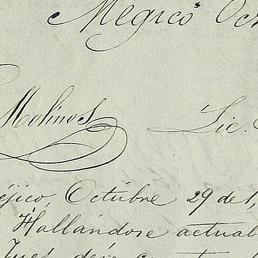 Megico Oct
Molinos Lic.
éjico, Octubre 29 de 1,
Hallándose actual